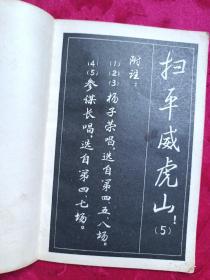 扫平威虎山！(5)
附注：
(1)(2)(3)杨子荣唱，选自第四、五、八场。
(4)(5)参谋长唱，选自第四、七场。